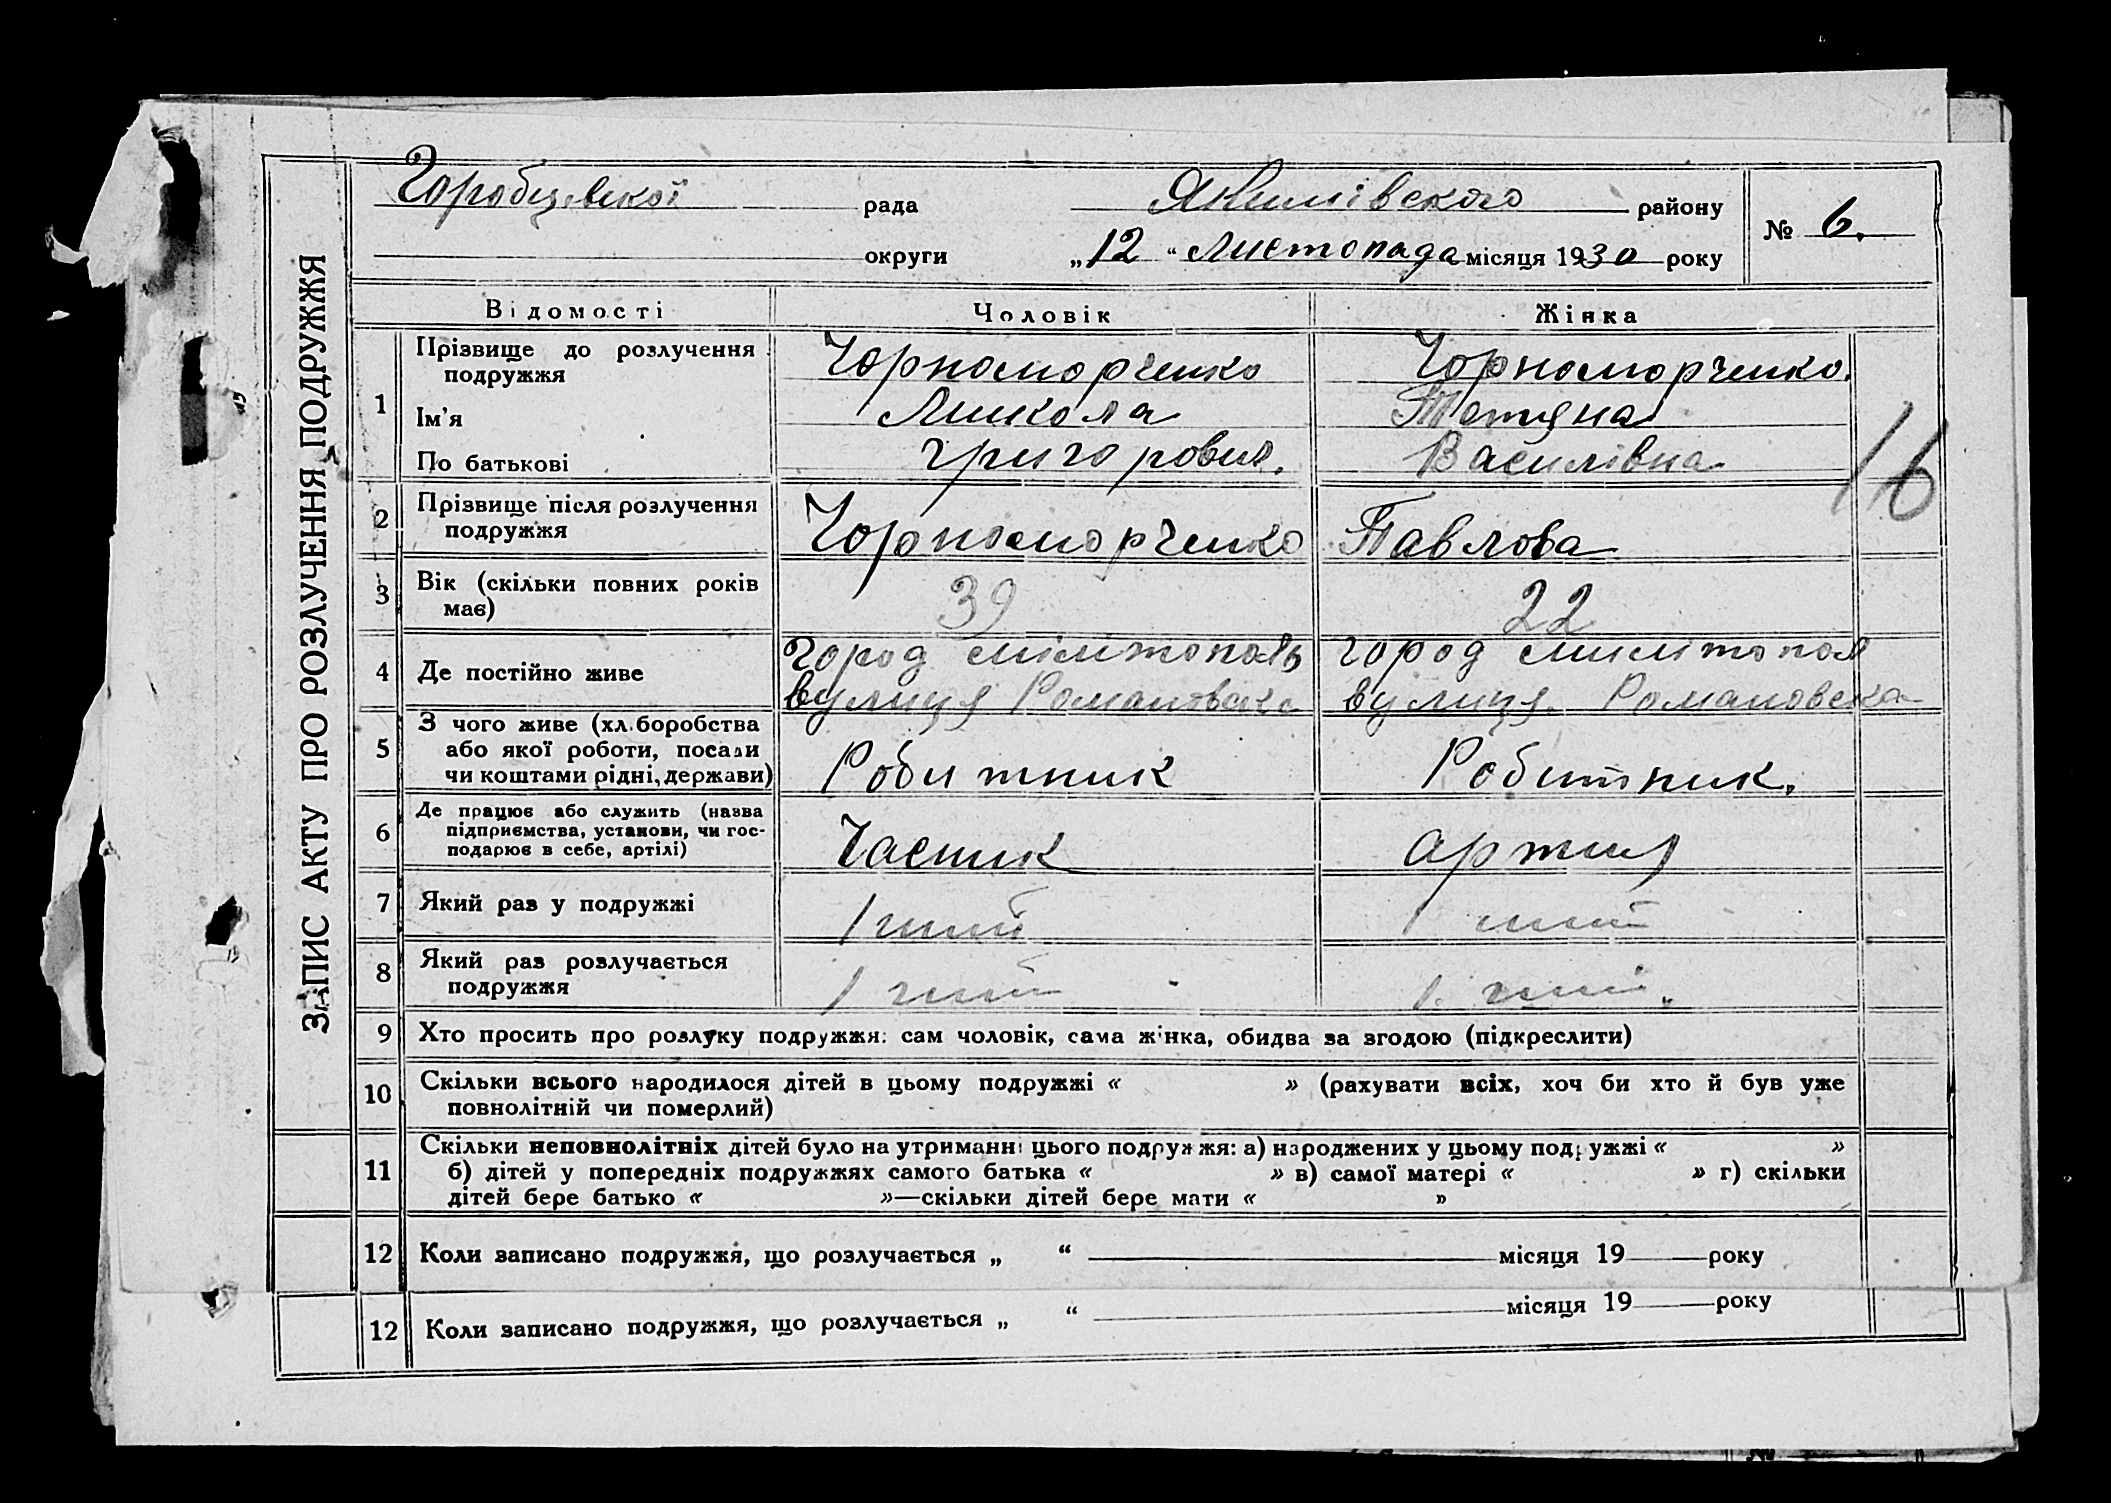 ЗАПИС АКТУ ПРО РОЗЛУЧЕННЯ ПОДРУЖЖЯ
Горобцевкої рада Якимівского району № 6.
округи „12“ Листопада місяця 1930 року
Відомості Чоловік Жінка
1 Прізвище до розлучення подружжя Чорноморченко Чорноморченко.
Ім'я Микола Тетяна
По батькові Григорович. Василівна
16
2 Прізвище після розлучення подружжя Чорноморченко Павлова
3 Вік (скільки повних років має) 39 22
4 Де постійно живе город Мілітополь город Милітопол
вулиця Романовска вулиця. Романовска
5 З чого живе (хл.боробства
або якої роботи, посади
чи коштами рідні, держави) Робитник Робитник.
6 Де працює або служить (назва
підприємства, установи, чи гос-
подарює в себе, артілі) Часник артил
7 Який раз у подружжі 1ший 1 ший
8 Який раз розлучається подружжя 1 ший 1. ший.
9 Хто просить про розлуку подружжя: сам чоловік, сама жінка, обидва за згодою (підкреслити)
10 Скільки всього народилося дітей в цьому подружжі « » (рахувати всіх, хоч би хто й був уже
повнолітній чи померлий)
11 Скільки неповнолітніх дітей було на утриманні цього подружжя: а) народжених у цьому подружжі « »
б) дітей у попередніх подружжях самого батька « » в) самої матері « » г) скільки
дітей бере батько « »—скільки дітей бере мати « »
12 Коли записано подружжя, що розлучається „ “ місяця 19 року
12 Коли записано подружжя, що розлучається „ “ місяця 19 року